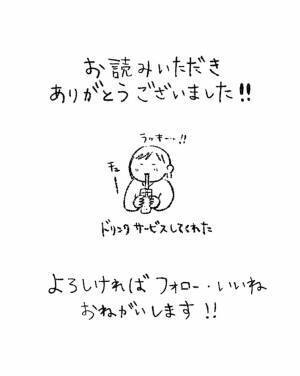 お読みいただき
ありがとうございました!!
ラッキー…!!
チュー
ドリンクサービスしてくれた
よろしければフォロー・いいね
おねがいします!!